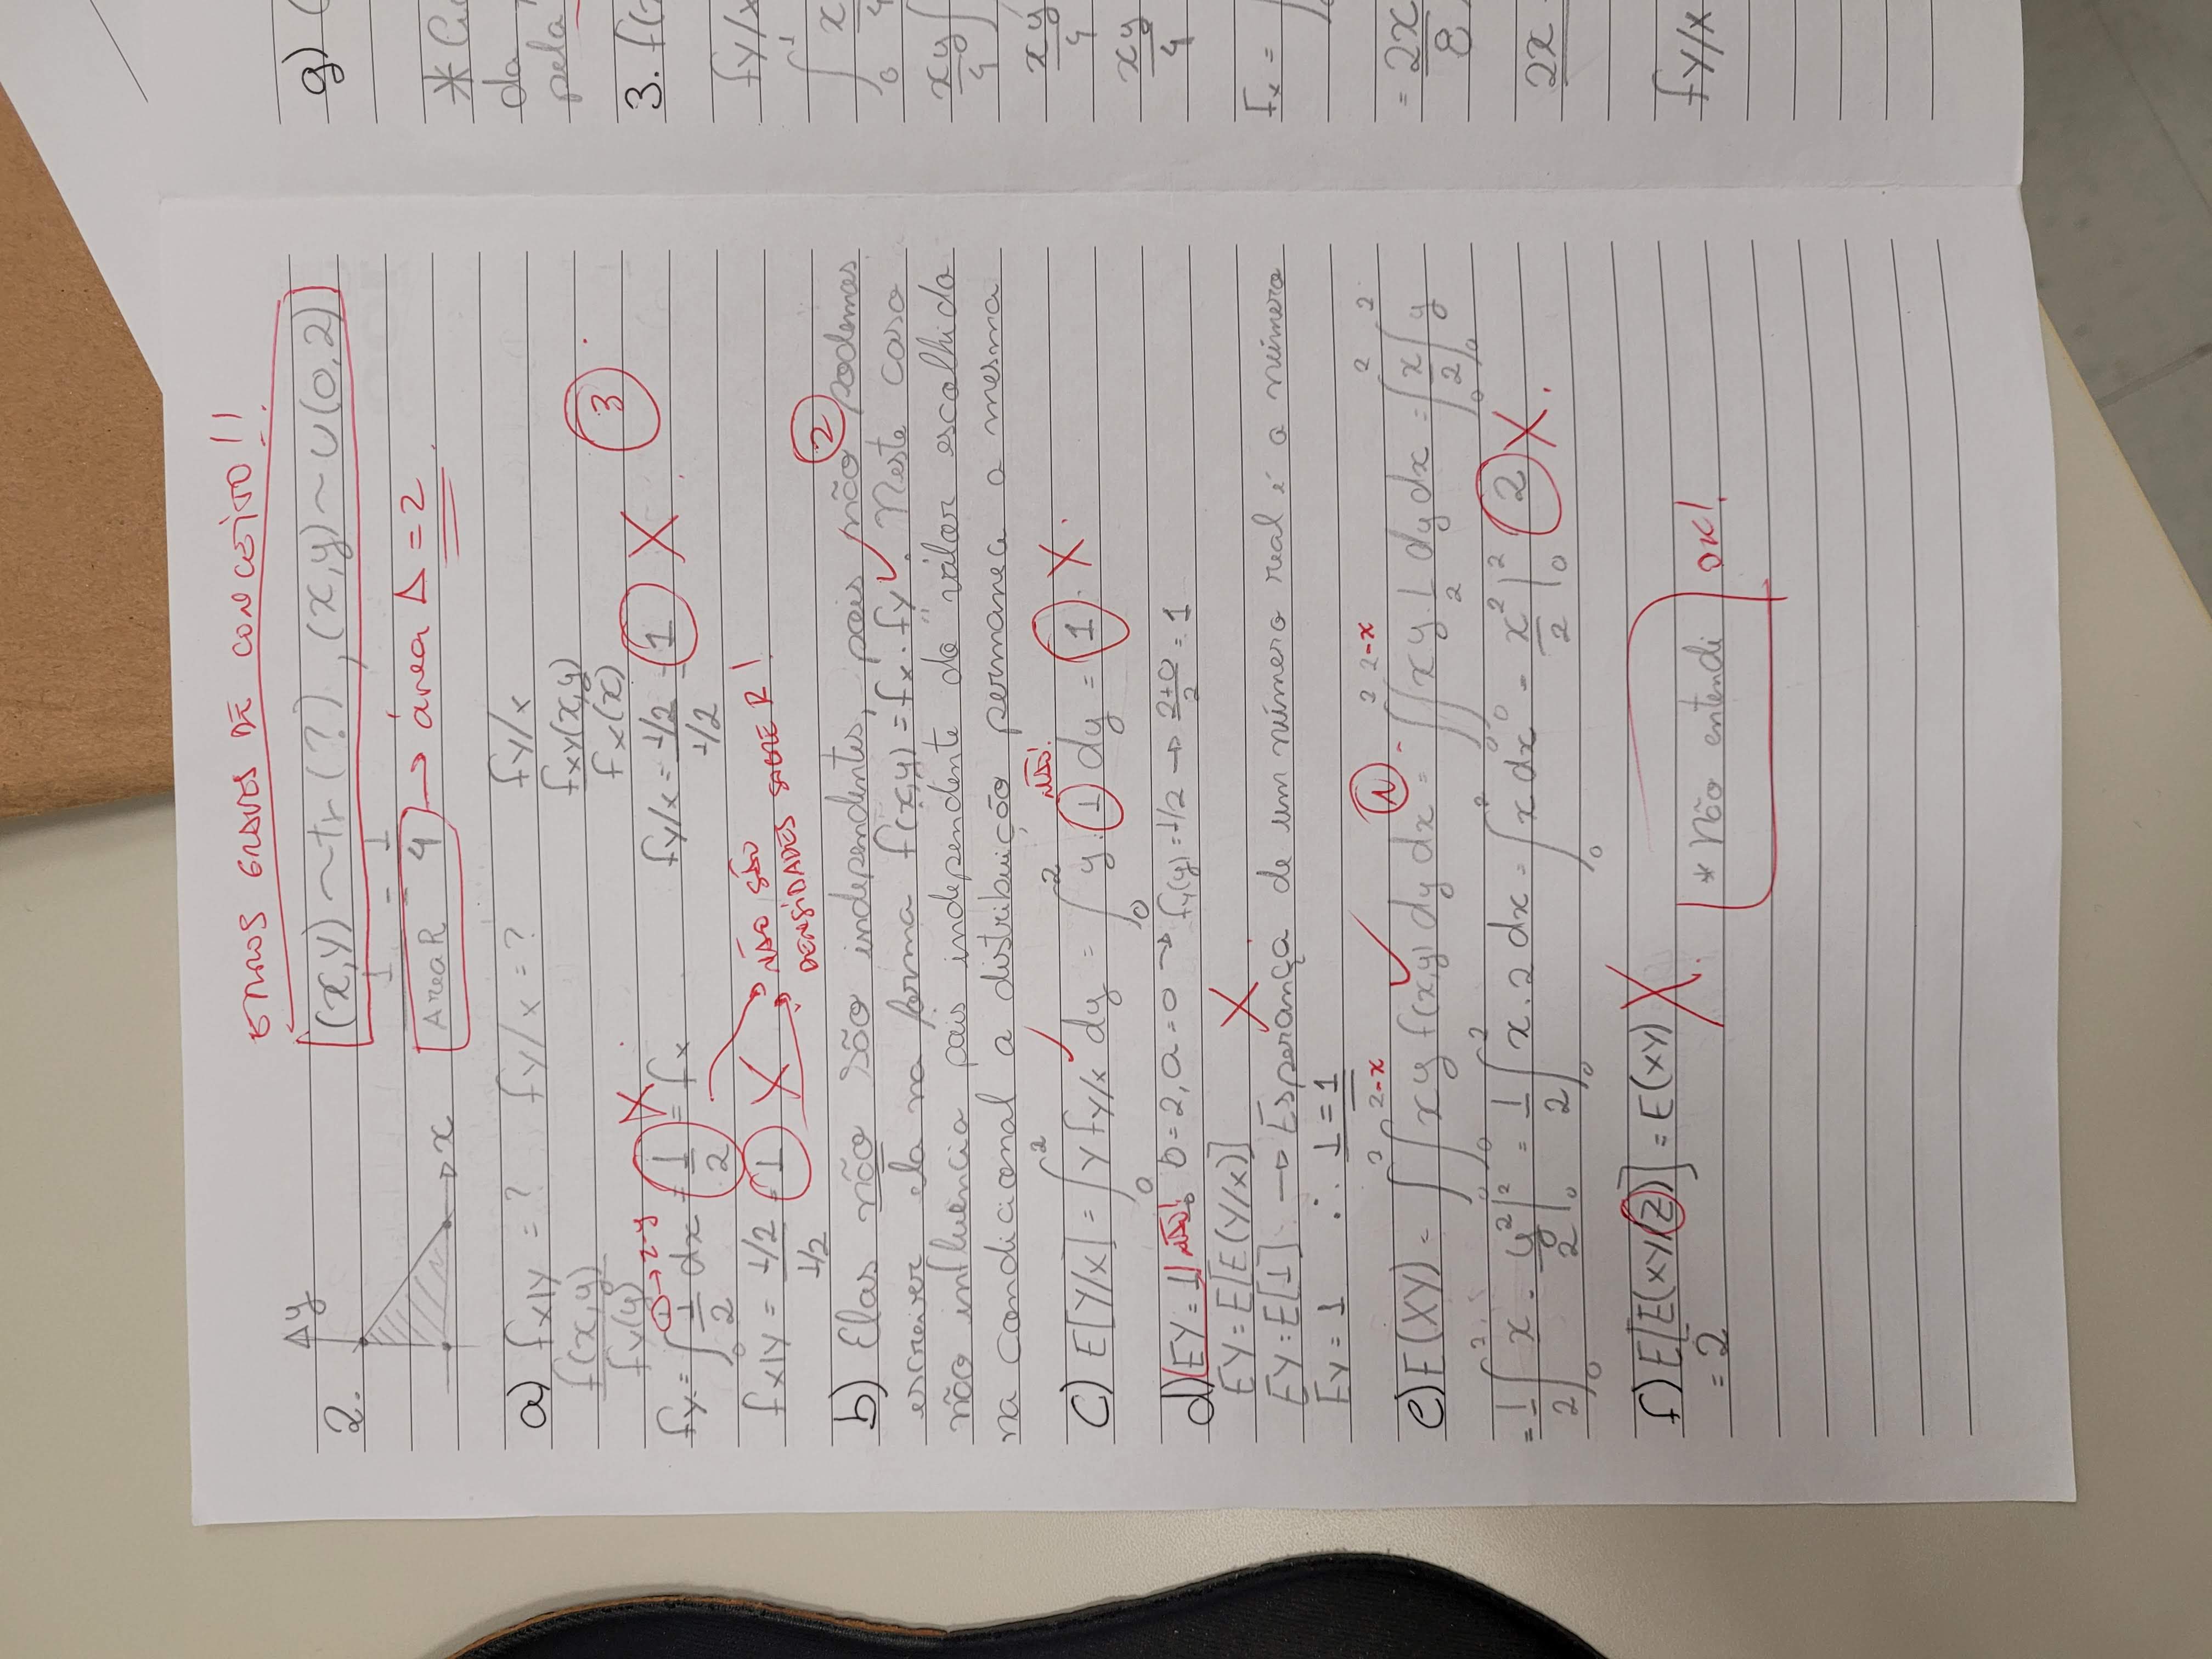 ERROS GRAVES DE CONCEITO!!
2.
y
x
(x,y) ~ tr (?), (x,y) ~ U(0,2)
1/Area R = 1/4 → área Δ = 2
a) fx|y = ? fy/x = ? fy/x
f(x,y)/fy(y) fxy(x,y)/fx(x)
3
→ 2-y
fy = ∫₀¹ 1/2 dx = 1/2 = fx X fy/x = 1/2 / 1/2 = 1 X
fx|y = 1/2 / 1/2 = 1 X
NÃO SÃO
DENSIDADES SOBRE R!
2
b) Elas não são independentes, pois não podemos
escrever ela na forma f(x,y) = fx . fy. Neste caso
não influência pois independente do valor escolhido
na condicional a distribuição permanece a mesma
NÃO!
c) E[Y/x] = ∫₀² y fy/x dy = ∫₀² y . 1 dy = 1. X
d) EY = 1 NÃO! b = 2, a = 0 → fy(y) = 1/2 → (2+0)/2 = 1
EY = E[E(Y/x)] X
EY = E[1] → Esperança de um número real é o número
EY = 1 ∴ 1 = 1
e) E(XY) = ∫₀²∫₀²⁻ˣ xy f(x,y) dy dx = ∫₀²∫₀²⁻ˣ xy . 1/2 dy dx = ∫₀² x/2 ∫₀² y
= 1/2 ∫₀² x . y²/2 |₀² = 1/2 ∫₀² x . 2 dx = ∫₀² x dx = x²/2 |₀² 2 X.
f) E[E(XY/Z)] = E(XY) X
= 2
* Não entendi OK!
g) (
da
pela
3. f(
fy/x
∫₀¹ x
xy/4 ∫
xy/4
xy/4
Fx =
= 2x/8
2x
fy/x